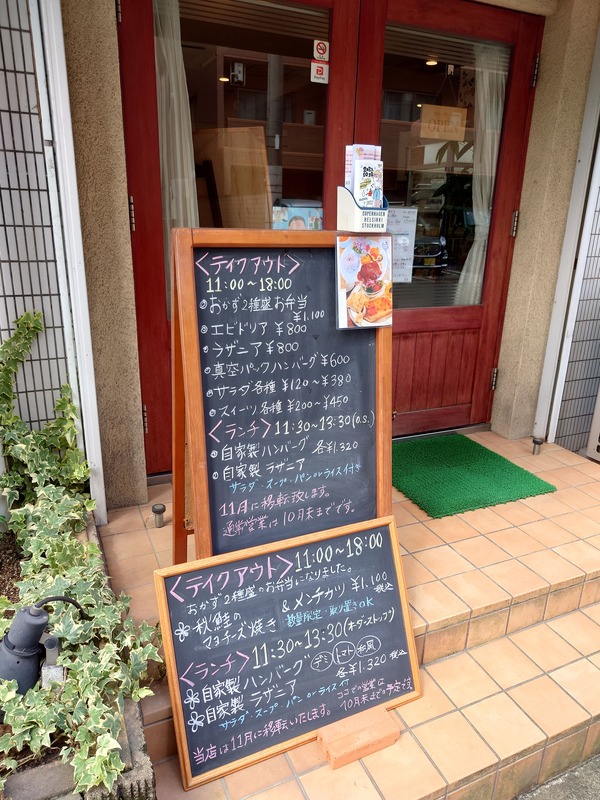 OPEN
PayPay
COPENHAGEN
HELSINKI
STOCKHOLM
<テイクアウト>
11:00~18:00
おかず2種盛お弁当
¥1,100
エビドリア ¥800
ラザニア ¥800
真空パックハンバーグ ¥600
サラダ各種 ¥120~¥380
スイーツ各種 ¥200~¥450
<ランチ> 11:30~13:30(o.s.)
自家製ハンバーグ 各¥1,320
自家製ラザニア
サラダ・スープ・パンorライス付き
11月に移転致します。
通常営業は10月末までです。
<テイクアウト> 11:00~18:00
おかず2種盛のお弁当になりました。
秋鮭の
マヨチーズ焼き & メンチカツ ¥1,100税込
数量限定・取り置きOK
<ランチ> 11:30~13:30(オーダーストップ)
自家製ハンバーグ デミ トマト 和風
自家製ラザニア 各¥1,320税込
サラダ・スープ・パンorライス付
ココでの営業は
10月末までの予定です
当店は11月に移転いたします。